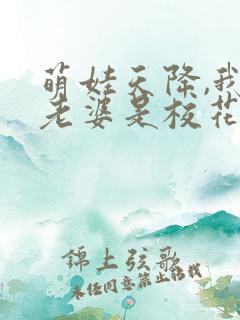 萌娃天降,我
老婆是校花
錦上弦歌
未经同意禁止转载